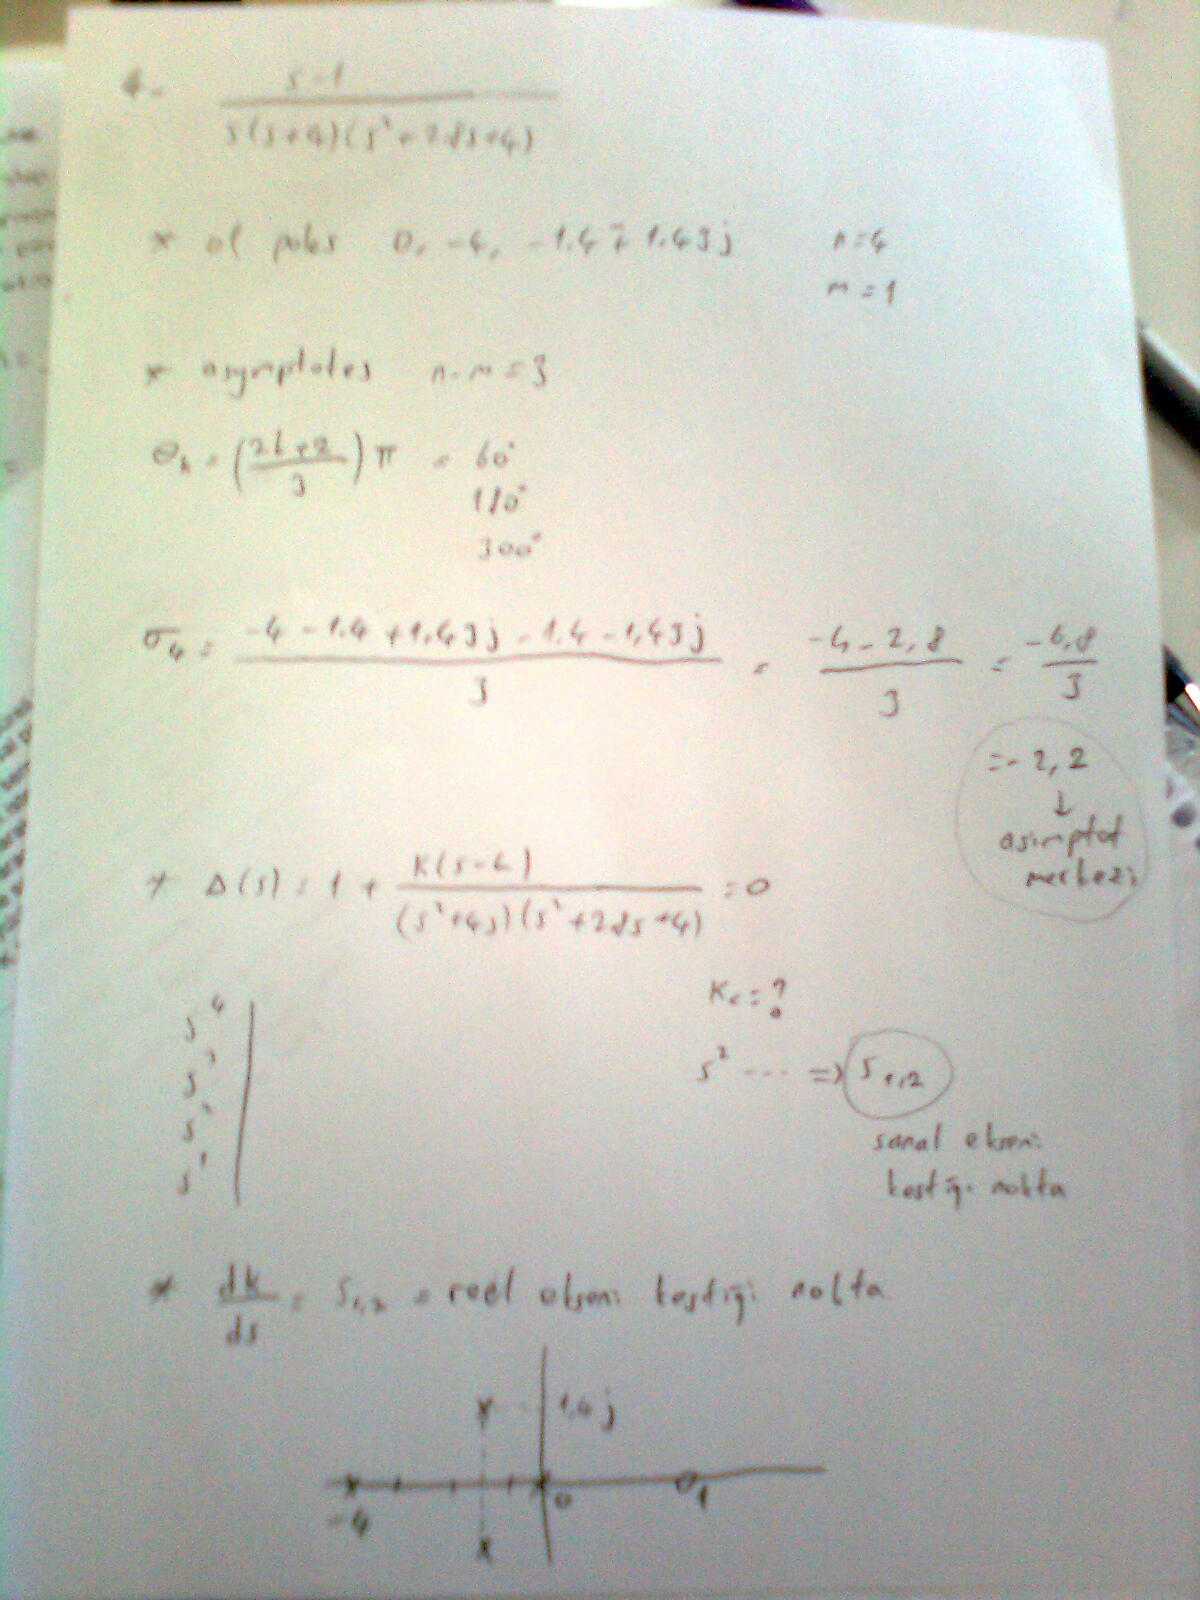 4- s-1
s(s+4)(s²+2.8s+4)
* ol poles 0, -4, -1.4∓1.43j n=4
m=1
* asymptotes n-m=3
Θk = (2k+2/3)π = 60°
180°
300°
σ4 = -4-1.4+1.43j-1.4-1,43j / 3 = -4-2,8 / 3 = -6,8 / 3
=-2,2
↓
asimptot
merkezi
* Δ(s) = 1 + K(s-1) / (s²+4s)(s²+2.8s+4) = 0
Kc=?
s⁴
s³
s²
s¹
s² ... => s1,2
sanal ekseni
kestiği nokta
* dk/ds = s1,2 = reel ekseni kestiği nokta
1,4j
-4 0 1